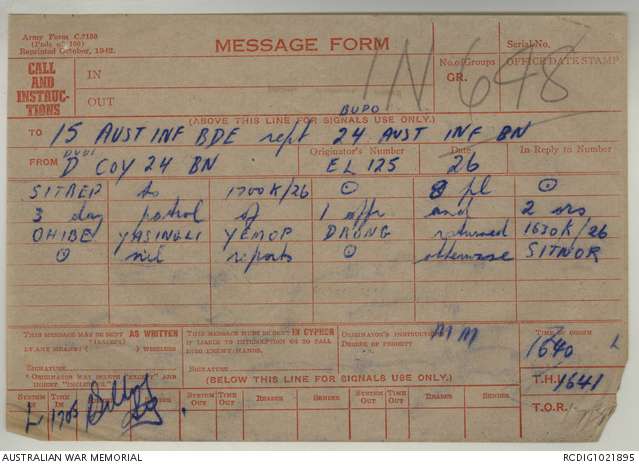 Army Form C.2136
(Pads of 100)
Reprinted October, 1942.
MESSAGE FORM
Serial No.
CALL AND INSTRUC- TIONS
IN
OUT
No. of Groups
GR.
OFFICE DATE STAMP
IN 648
(ABOVE THIS LINE FOR SIGNALS USE ONLY.)
BUPO
TO 15 AUST INF BDE rept 24 AUST INF BN
FROM D COY 24 BN
Originator's Number
EL 125
Date
26
In Reply to Number
SITREP to 1700K/26 ⊙ 8 pl ⊙
3 day patrol of 1 offr and 2 ors
OHIBE YASINGLI YEMOP DRONG returned 1630K/26
⊙ nil reports ⊙ otherwise SITNOR
THIS MESSAGE MAY BE SENT AS WRITTEN
BY ANY MEANS WIRELESS
SIGNATURE
THIS MESSAGE MUST BE SENT IN CYPHER
IF LIABLE TO INTERCEPTION OR TO FALL
INTO ENEMY HANDS.
SIGNATURE
ORIGINATOR'S INSTRUCTIONS
DEGREE OF PRIORITY
MM
TIME OF ORIGIN
1640 L
T.H.I. 1641
T.O.R.
(BELOW THIS LINE FOR SIGNALS USE ONLY.)
SYSTEM IN
TIME IN
READER
SENDER
SYSTEM OUT
TIME OUT
READER
SENDER
SYSTEM OUT
TIME OUT
READER
SENDER
L 1705
AUSTRALIAN WAR MEMORIAL
RCDIG1021895